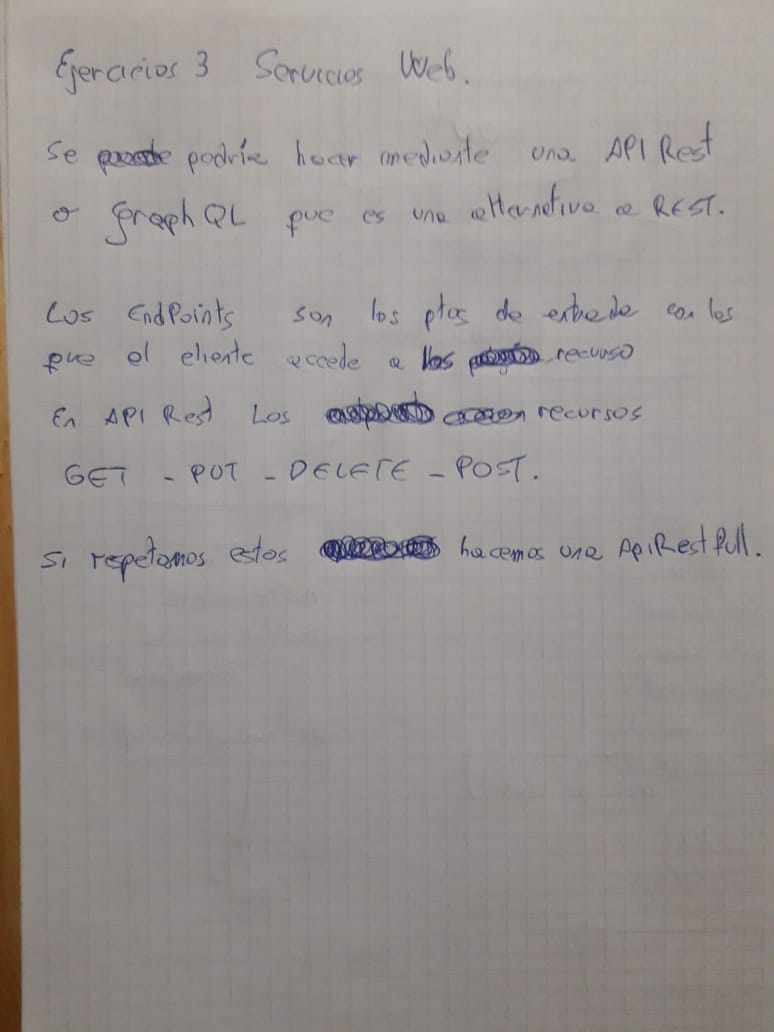 Ejercicios 3 Servicios Web.
Se podría hacer mediante una API Rest
o GraphQL que es una alternativa a REST.
Los EndPoints son los ptos de entrada con los
que el cliente accede a los recurso
En API Rest Los recursos
GET - PUT - DELETE - POST.
Si respetamos estos hacemos una ApiRestfull.